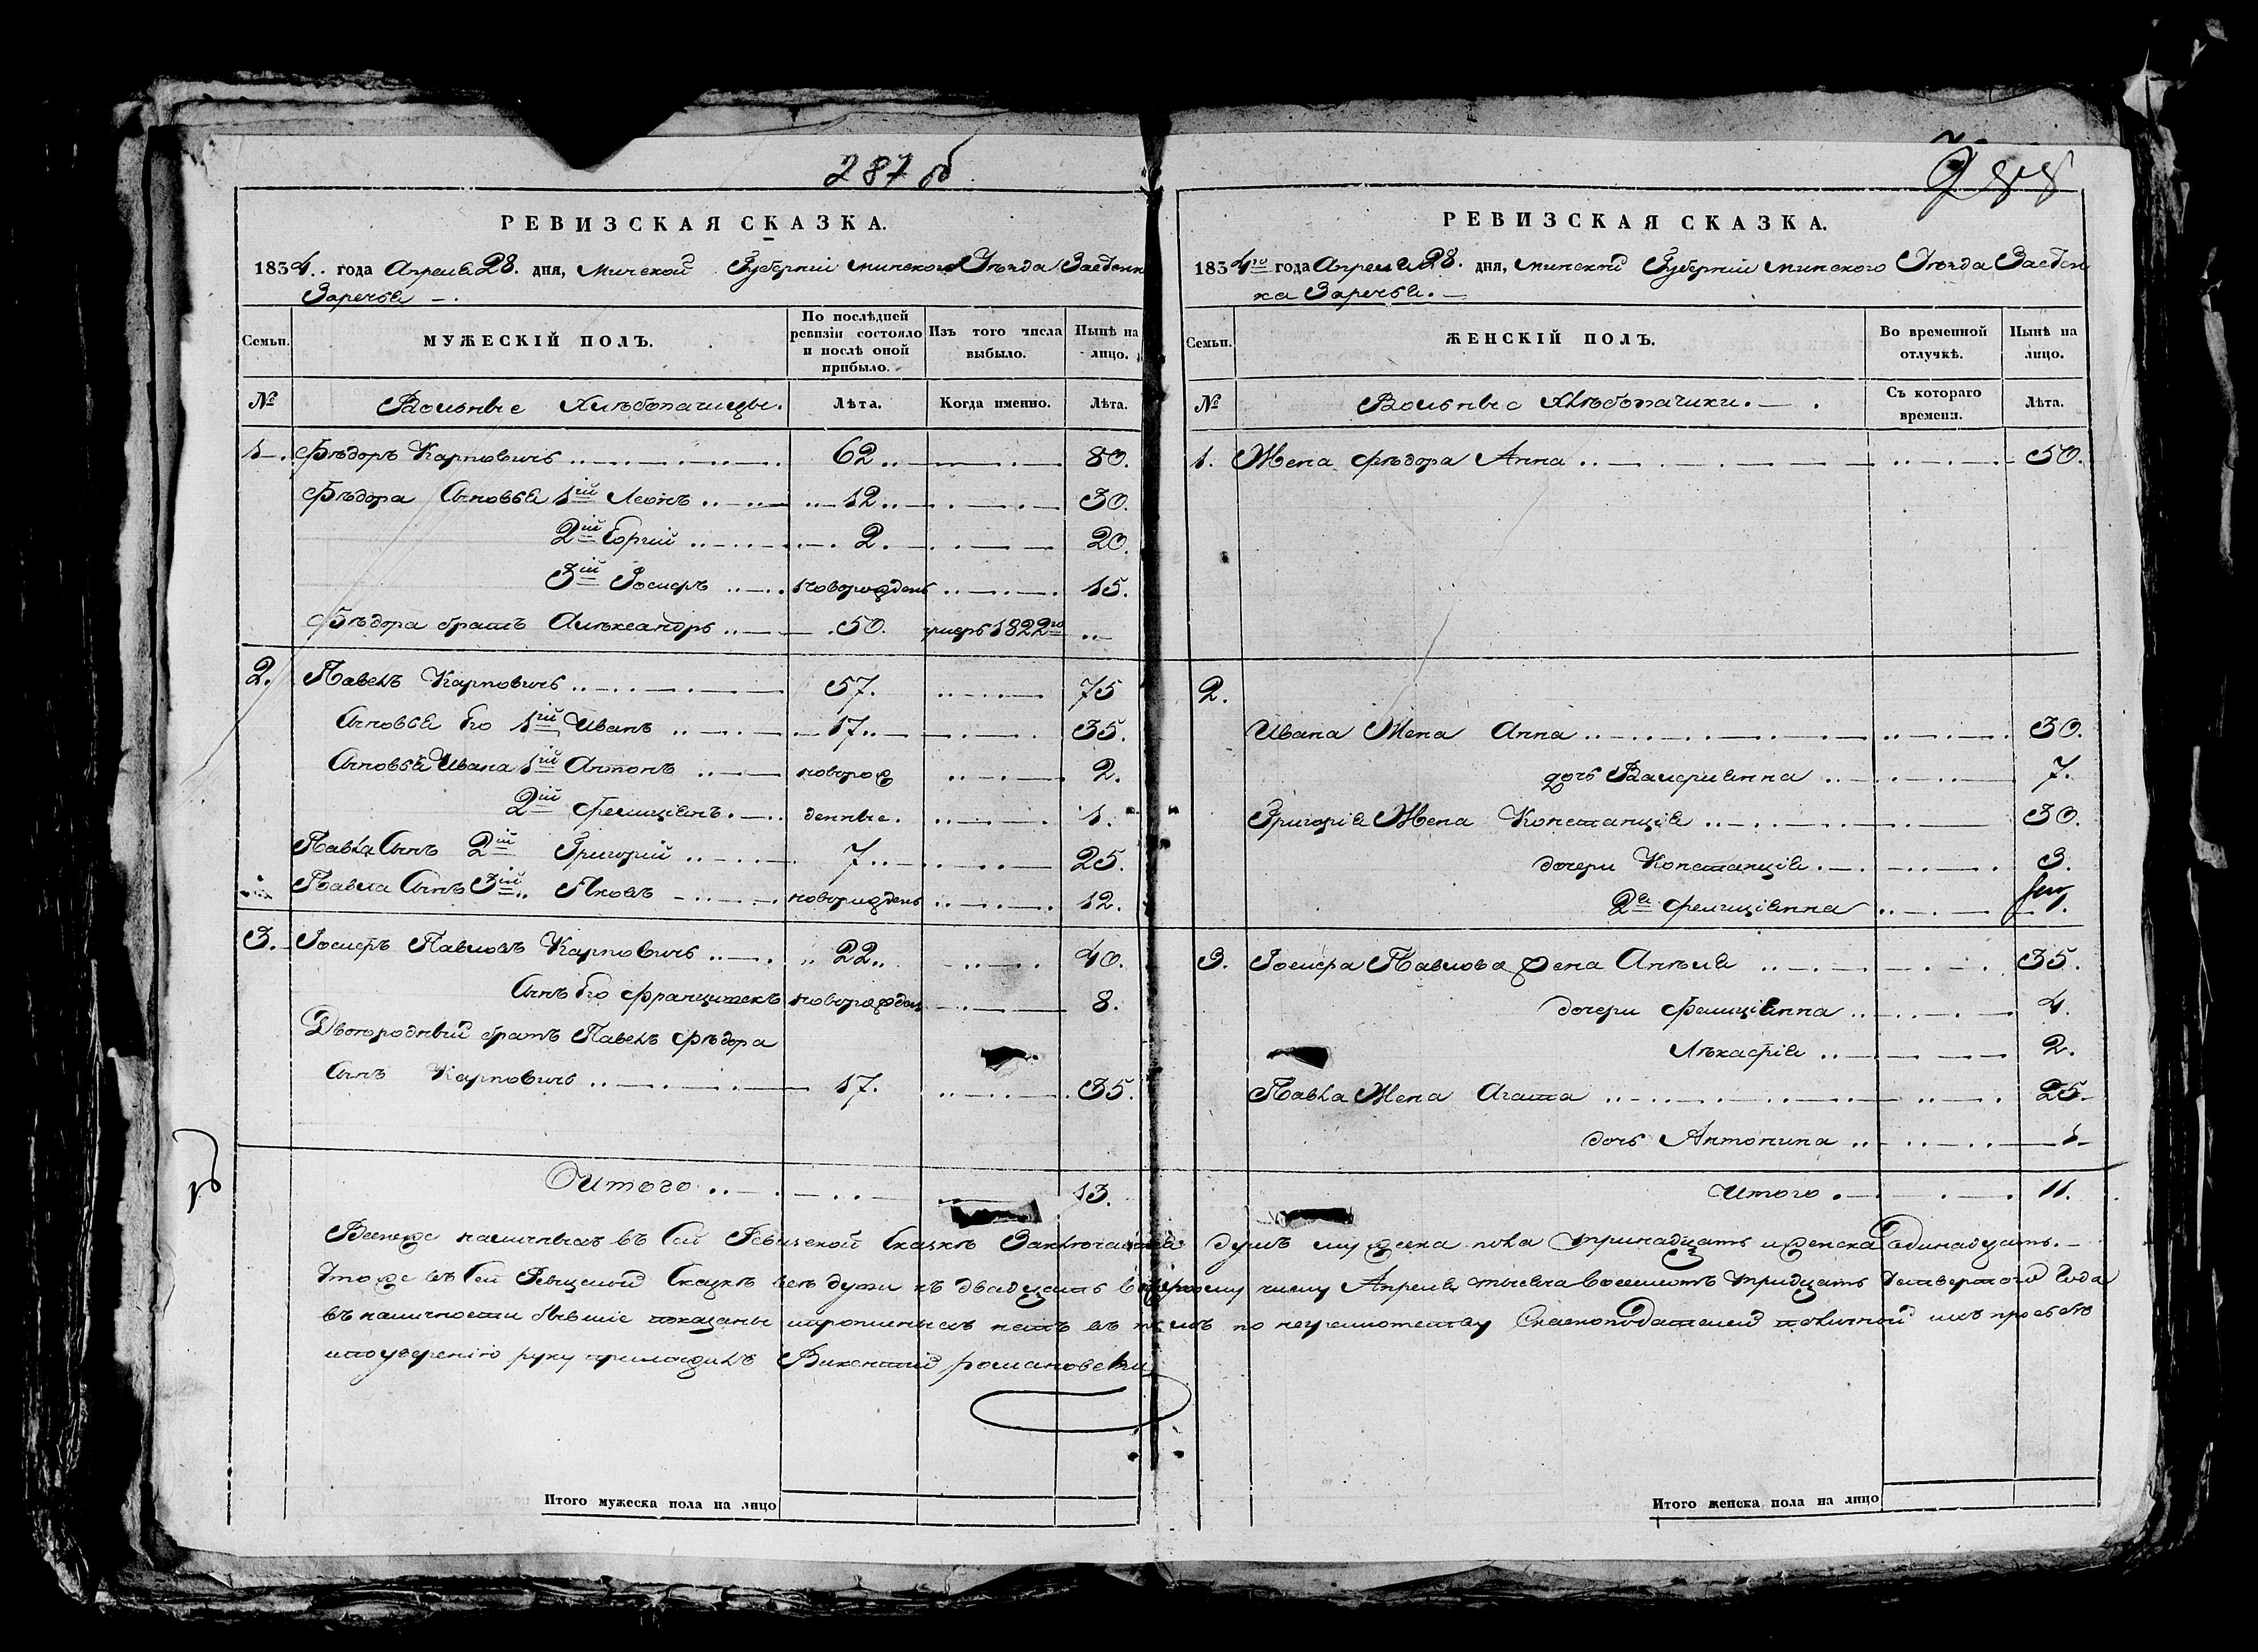 287 об
РЕВИЗСКАЯ СКАЗКА.
1834. года Апреля 28. дня, минской Губерніи минского Уѣзда Застенк
Заречья
Семьи.
МУЖЕСКІЙ ПОЛЪ.
По послѣдней ревизіи состояло и послѣ оной прибыло.
Изъ того числа выбыло.
Нынѣ на лицо.
№
Вольные Хлѣбопашцы.
Лѣта.
Когда именно.
Лѣта.
1. Фѣдоръ Карповичъ 62 80.
Фѣдора Сыновья 1ій Леонъ 12 30.
2ій 2. 20.
3ій Іосифъ новорожденъ 15.
Фѣдора братъ Алѣксандръ 50. умеръ 1822го
2. Павелъ Карповичъ 57. 75
Сыновья Его 1ій Иванъ 17 35.
Сыновья Ивана 1ій Антонъ новорож 2.
2ій Фелиціянъ денные. 1.
Павла Сынъ 2ій Григорій 7 25.
Павла Сынъ 3ій Яковъ новорожденъ 12.
3. Іосифъ Павловъ Карповичъ 22 40.
Сынъ Его Францишекъ новорожден 8.
Двоюродный братъ Павелъ Фѣдора
Сынъ Карповичъ 17. 35.
Итого 13.
Итого мужеска пола на лицо
288
РЕВИЗСКАЯ СКАЗКА.
1834го года Апреля 28. дня, минской Губерніи минского Уѣзда Застен
ка Заречья.
Семьи.
ЖЕНСКІЙ ПОЛЪ.
Во временной отлучкѣ.
Нынѣ на лицо.
№
Вольные Хлѣбопашики.
Съ котораго времени.
Лѣта.
1. Жена Фѣдора Анна 50.
2.
Ивана Жена Анна 30.
дочь Валерианна 7.
Григорія Жена Констанція 30.
дочери Констанція 3.
2я Фелиціянна 1.
3. Іосифа Павлова жена Анѣля 35.
дочери Фелиціянна 4.
2.
Павла Жена Агата 25
дочь Антонина 1
Итого 11.
Всехже наличныхъ въ Сей Ревизской Сказкѣ Заключается душъ мужеска пола тринадцать и женска одинадцать.
Что же въ Сей Ревизской Сказкѣ всѣ души къ двадцать восьмому числу Апреля тысяча восемсотъ тридцать четвертого Года
въ наличности бывшие показаны и прописныхъ нетъ въ томъ по неграмотству Сказкоподателей по личной ихъ просьбѣ
и по уверенію руку приложилъ Викентий романовски
Итого женска пола на лицо